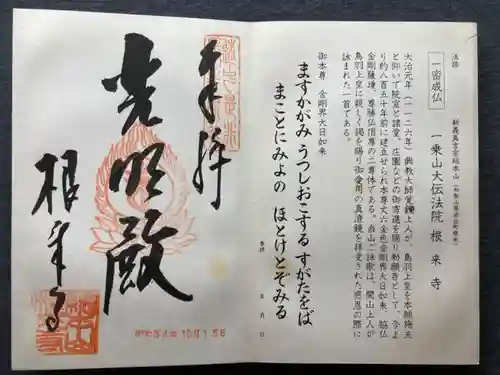 法語
一密成仏
新義真言宗総本山
一乗山大伝法院 根来寺
大治元年(一一二六年)興教大師覚鑁上人が、鳥羽上皇を本願施主
と仰いで院宣と諸堂、荘園などの御寄進を賜り勅願寺として、今よ
り約八百五十年前に建立せられ本尊丈六金色金剛界大日如来、脇仏
金剛薩埵、尊勝仏頂尊の二尊体である。当山ご詠歌は、開山上人が
鳥羽上皇に親しく謁を賜り御愛用の真澄鏡を拝受された感恩の際に
詠まれた一首である。
御本尊 金剛界大日如来
ますかがみ うつしおこする すがたをば
まことにみよの ほとけとぞみる
参拝 年 月 日
奉拝
光明殿
根来寺
昭和54年10月15日